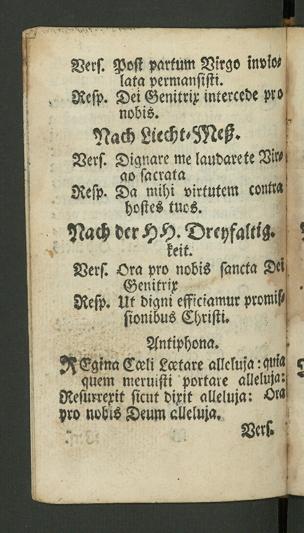 Vers. Post partum Virgo invio-
lata permansisti.
Resp. Dei Genitrix intercede pro
nobis.
Nach Liecht-Meß.
Vers. Dignare me laudare te Vir-
go sacrata
Resp. Da mihi virtutem contra
hostes tuos.
Nach der HH. Dreyfaltig-
keit.
Vers. Ora pro nobis sancta Dei
Genitrix
Resp. Ut digni efficiamur promis-
sionibus Christi.
Antiphona.
REgina Cœli Lætare alleluja: quia
quem meruisti portare alleluja:
Resurrexit sicut dixit alleluja: Ora
pro nobis Deum alleluja.
Vers.